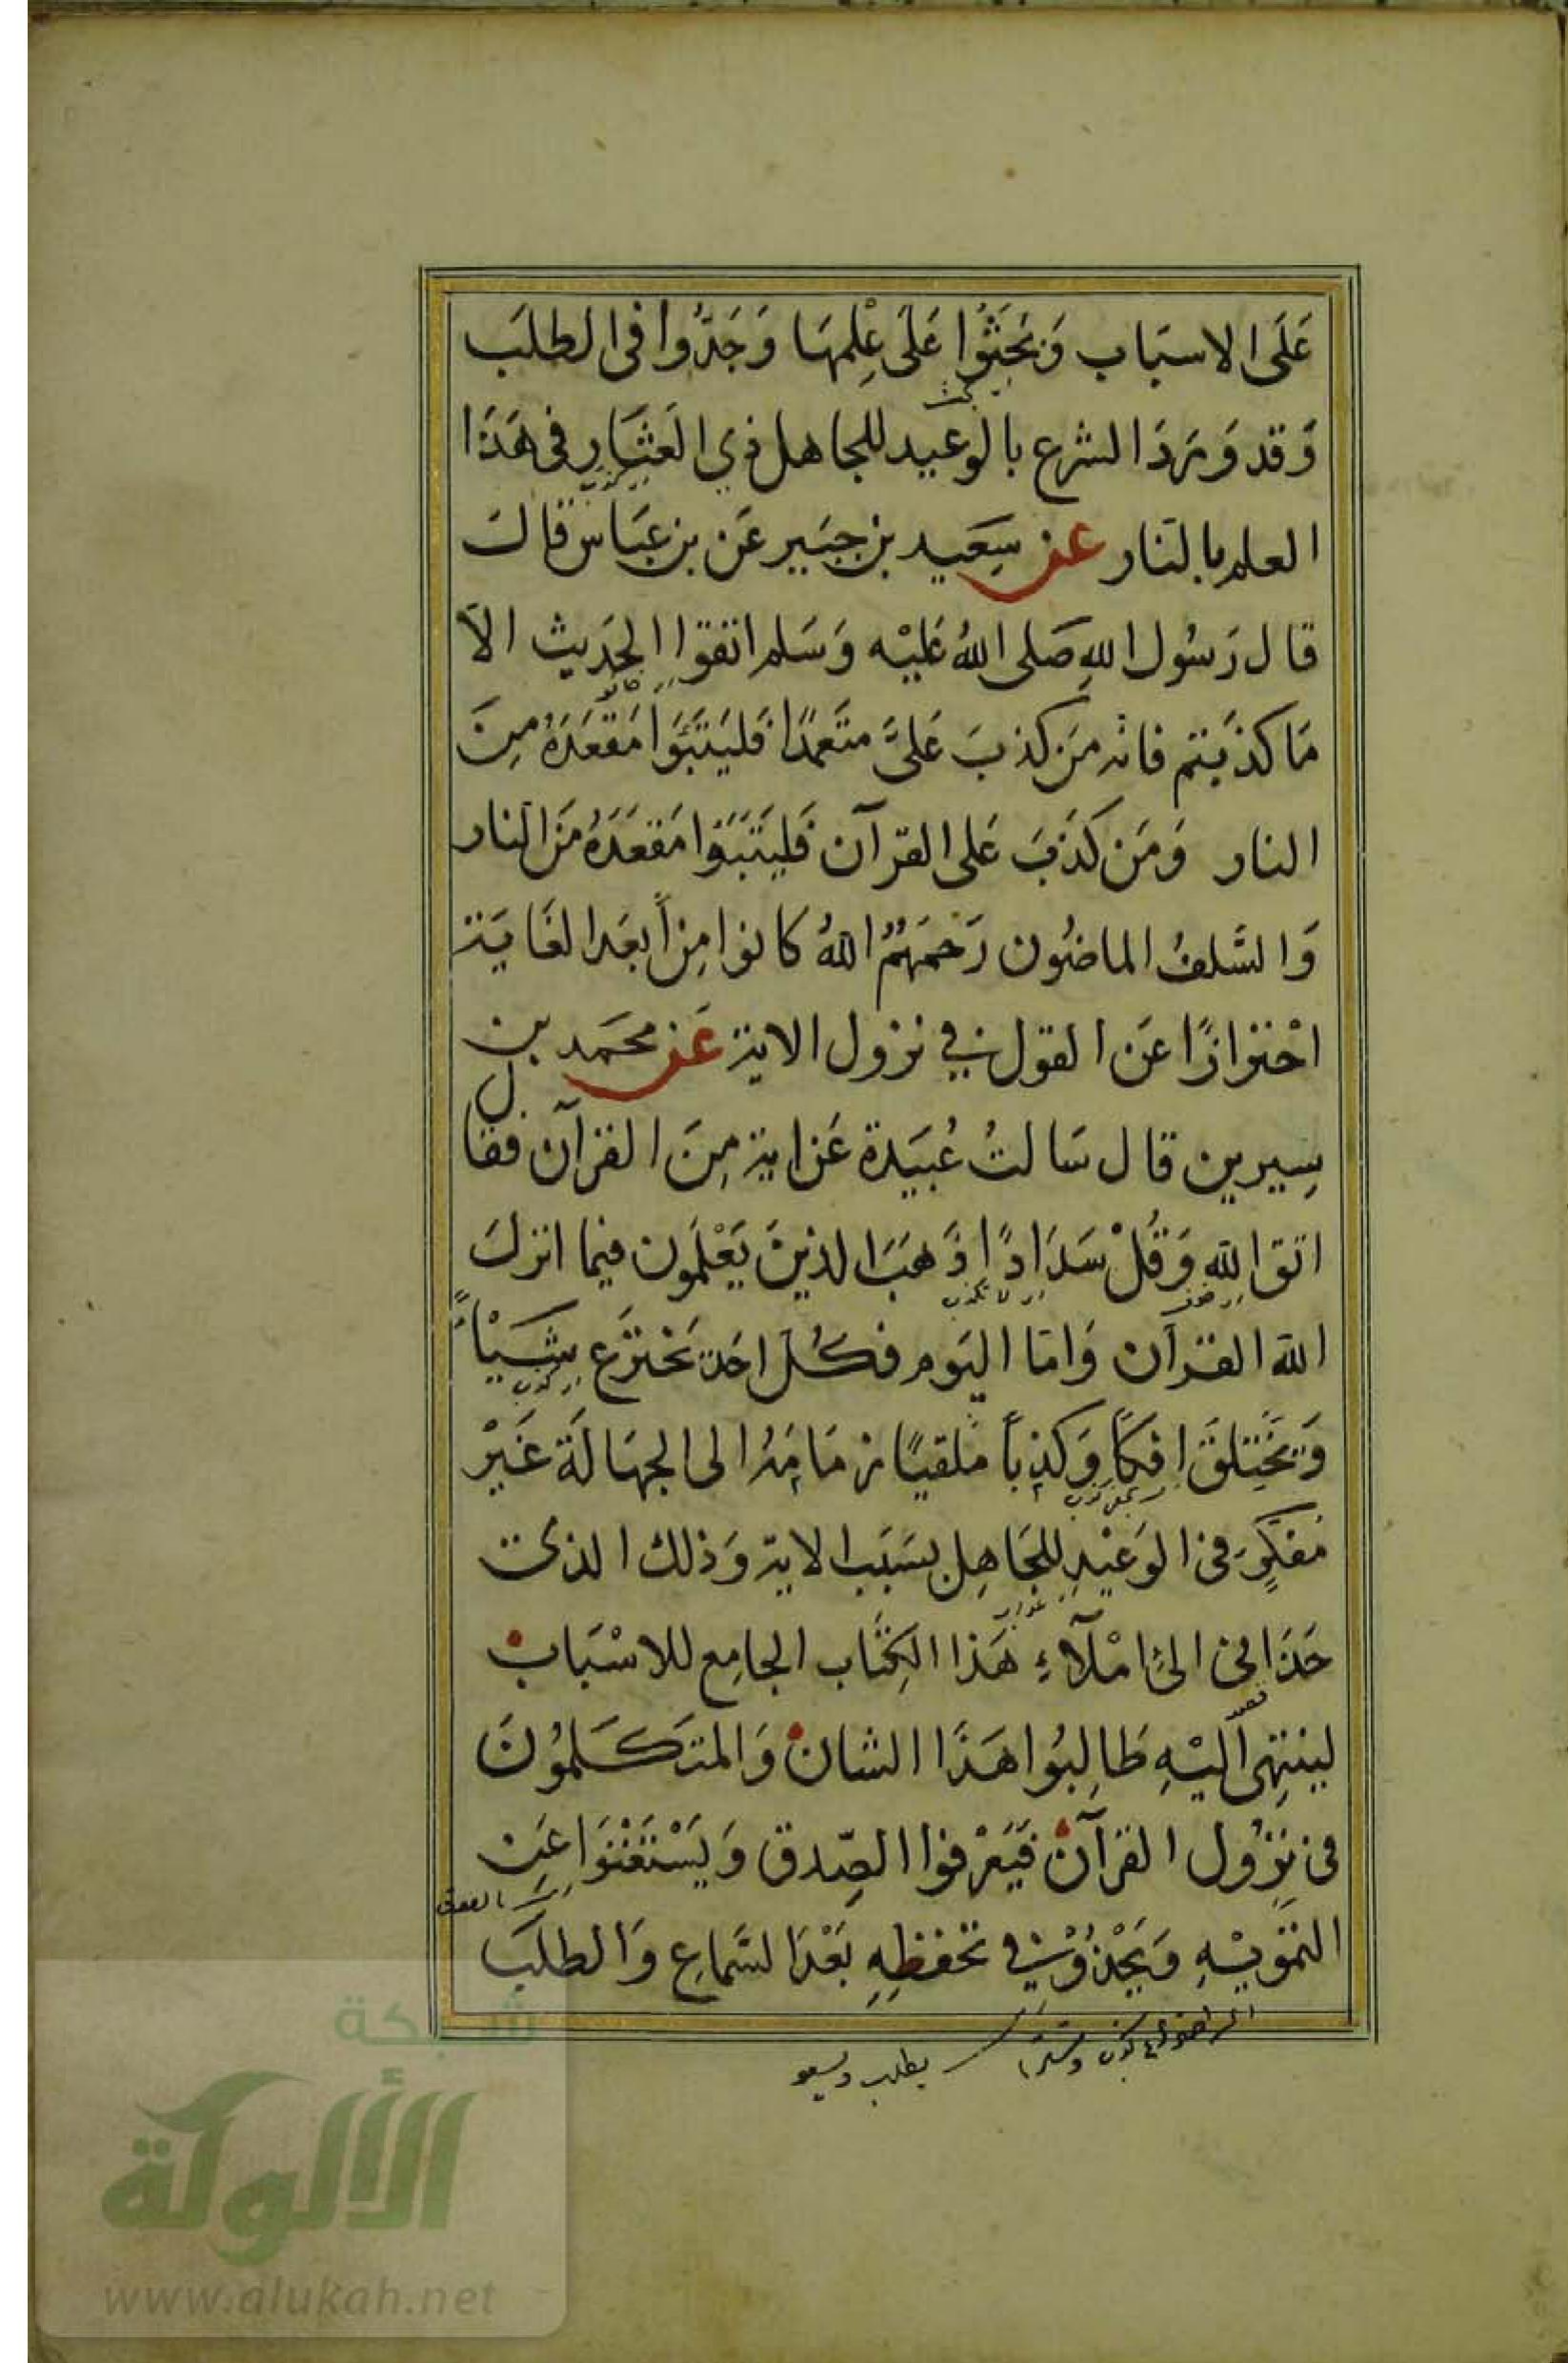 عَلَى الاسبَاب وَبَحَثُوا عَلَى عِلْمِهَا وَجَدُّوا فى الطلَب
وَقد وَرَدَ الشرع بالوعيد للجاهل ذي العَثَارِ فى هَذَا
العلم بالنار عن سَعيد بن جبَير عَن بن عبَاس قال
قال رَسُول اللهِ صَلى اللهُ عَليْه وَسَلم اتقوا الحَدِيث الا
مَا كذبَتم فانه مَن كذبَ عَلىَّ متَعَمدًا فَليَتَبَوَّأ مَقعَدَهُ مِنَ
النار وَمَن كَذَبَ عَلى القرآن فَليَتَبَوَا مَقعَدَهُ مَن النار
وَالسَّلفُ الماضُون رَحمَهُمُ اللهُ كانوا مِن أبعَد الغَايَة
احْترازًا عَن القول في نزول الاية عَن محَمد بن
سِيرين قال سَالتُ عُبَيدة عَن اية مِنَ القرآن فقال
اتق الله وَقُلْ سَدَادًا ذَهَبَ الذينَ يَعْلَمُون فيما انزلَ
الله القرآن وَامّا اليَوم فكُل احَد يَخترَع شَيْأً
وَيَخْتَلِقَ افِكًا وَكذِباً مُلقيًا زمَامَهُ الى الجهَالَة غَيْر
مُفكِرٍ فى الوَعيْدِ للجَاهِل بسَبَب الاية وَذلك الذى
حَدَا بى الىَ امْلآءِ هَذا الكِتَاب الجامِع للاسْبَاب
لينتهِى اليْهِ طَالِبُوا هَذَا الشان وَالمتَكَلمُونَ
فى نزُول القرآن فَيَعْرفوا الصّدق وَيَسْتَغْنُوَا عَن
التمويْهِ وَيَجِدُّوْا في تحفظِهِ بَعْدَ السَّماع وَالطلَب
يطلب
شبكة
الألوكة
www.alukah.net